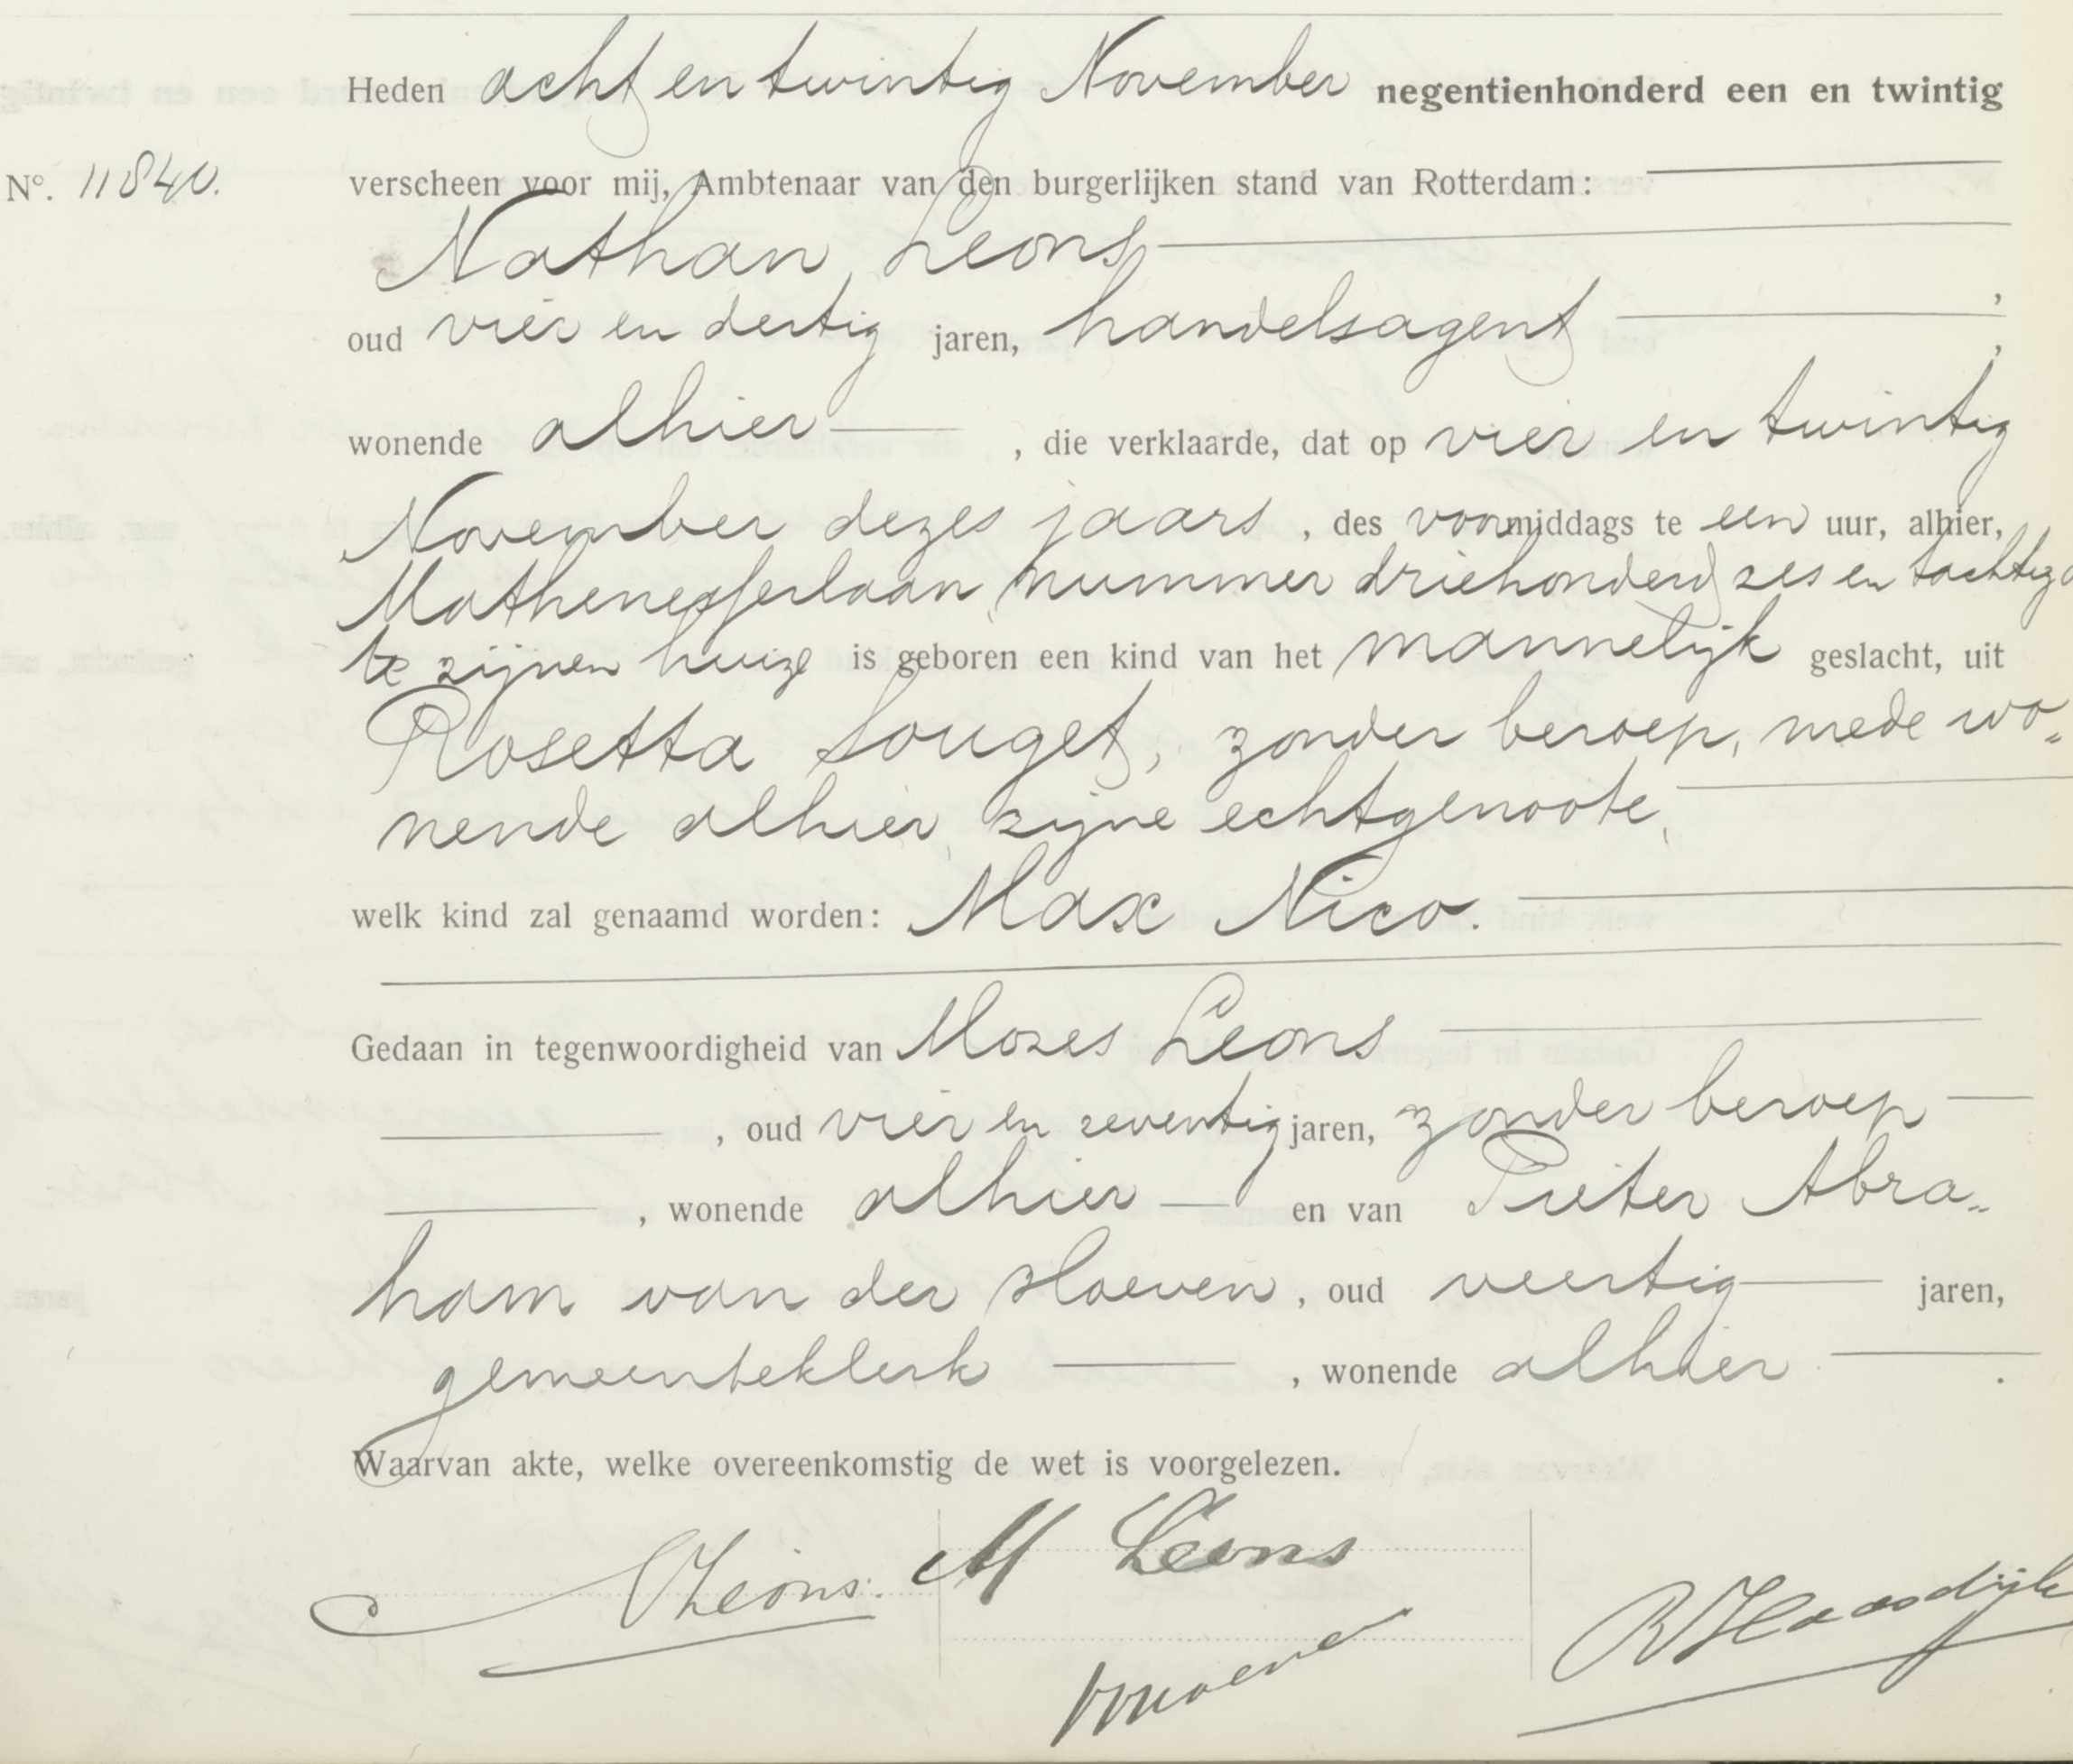 Heden acht en twintig November negentienhonderd een en twintig
Nº. 11840. verscheen voor mij, Ambtenaar van den burgerlijken stand van Rotterdam:
Nathan Leons
oud vier en dertig jaren, handelsagent,
wonende alhier, die verklaarde, dat op vier en twintig
November dezes jaars, des voormiddags te een uur, alhier,
Mathenesserlaan nummer driehonderd zes en tachtig
te zijnen huize is geboren een kind van het mannelijk geslacht, uit
Rosetta Souget, zonder beroep, mede wo„
nende alhier, zijne echtgenoote,
welk kind zal genaamd worden: Max Nico.
Gedaan in tegenwoordigheid van Mozes Leons
, oud vier en zeventig jaren, zonder beroep
, wonende alhier en van Pieter Abra„
ham van der Hoeven, oud veertig jaren,
gemeenteklerk, wonende alhier.
Waarvan akte, welke overeenkomstig de wet is voorgelezen.
NLeons. M Leons